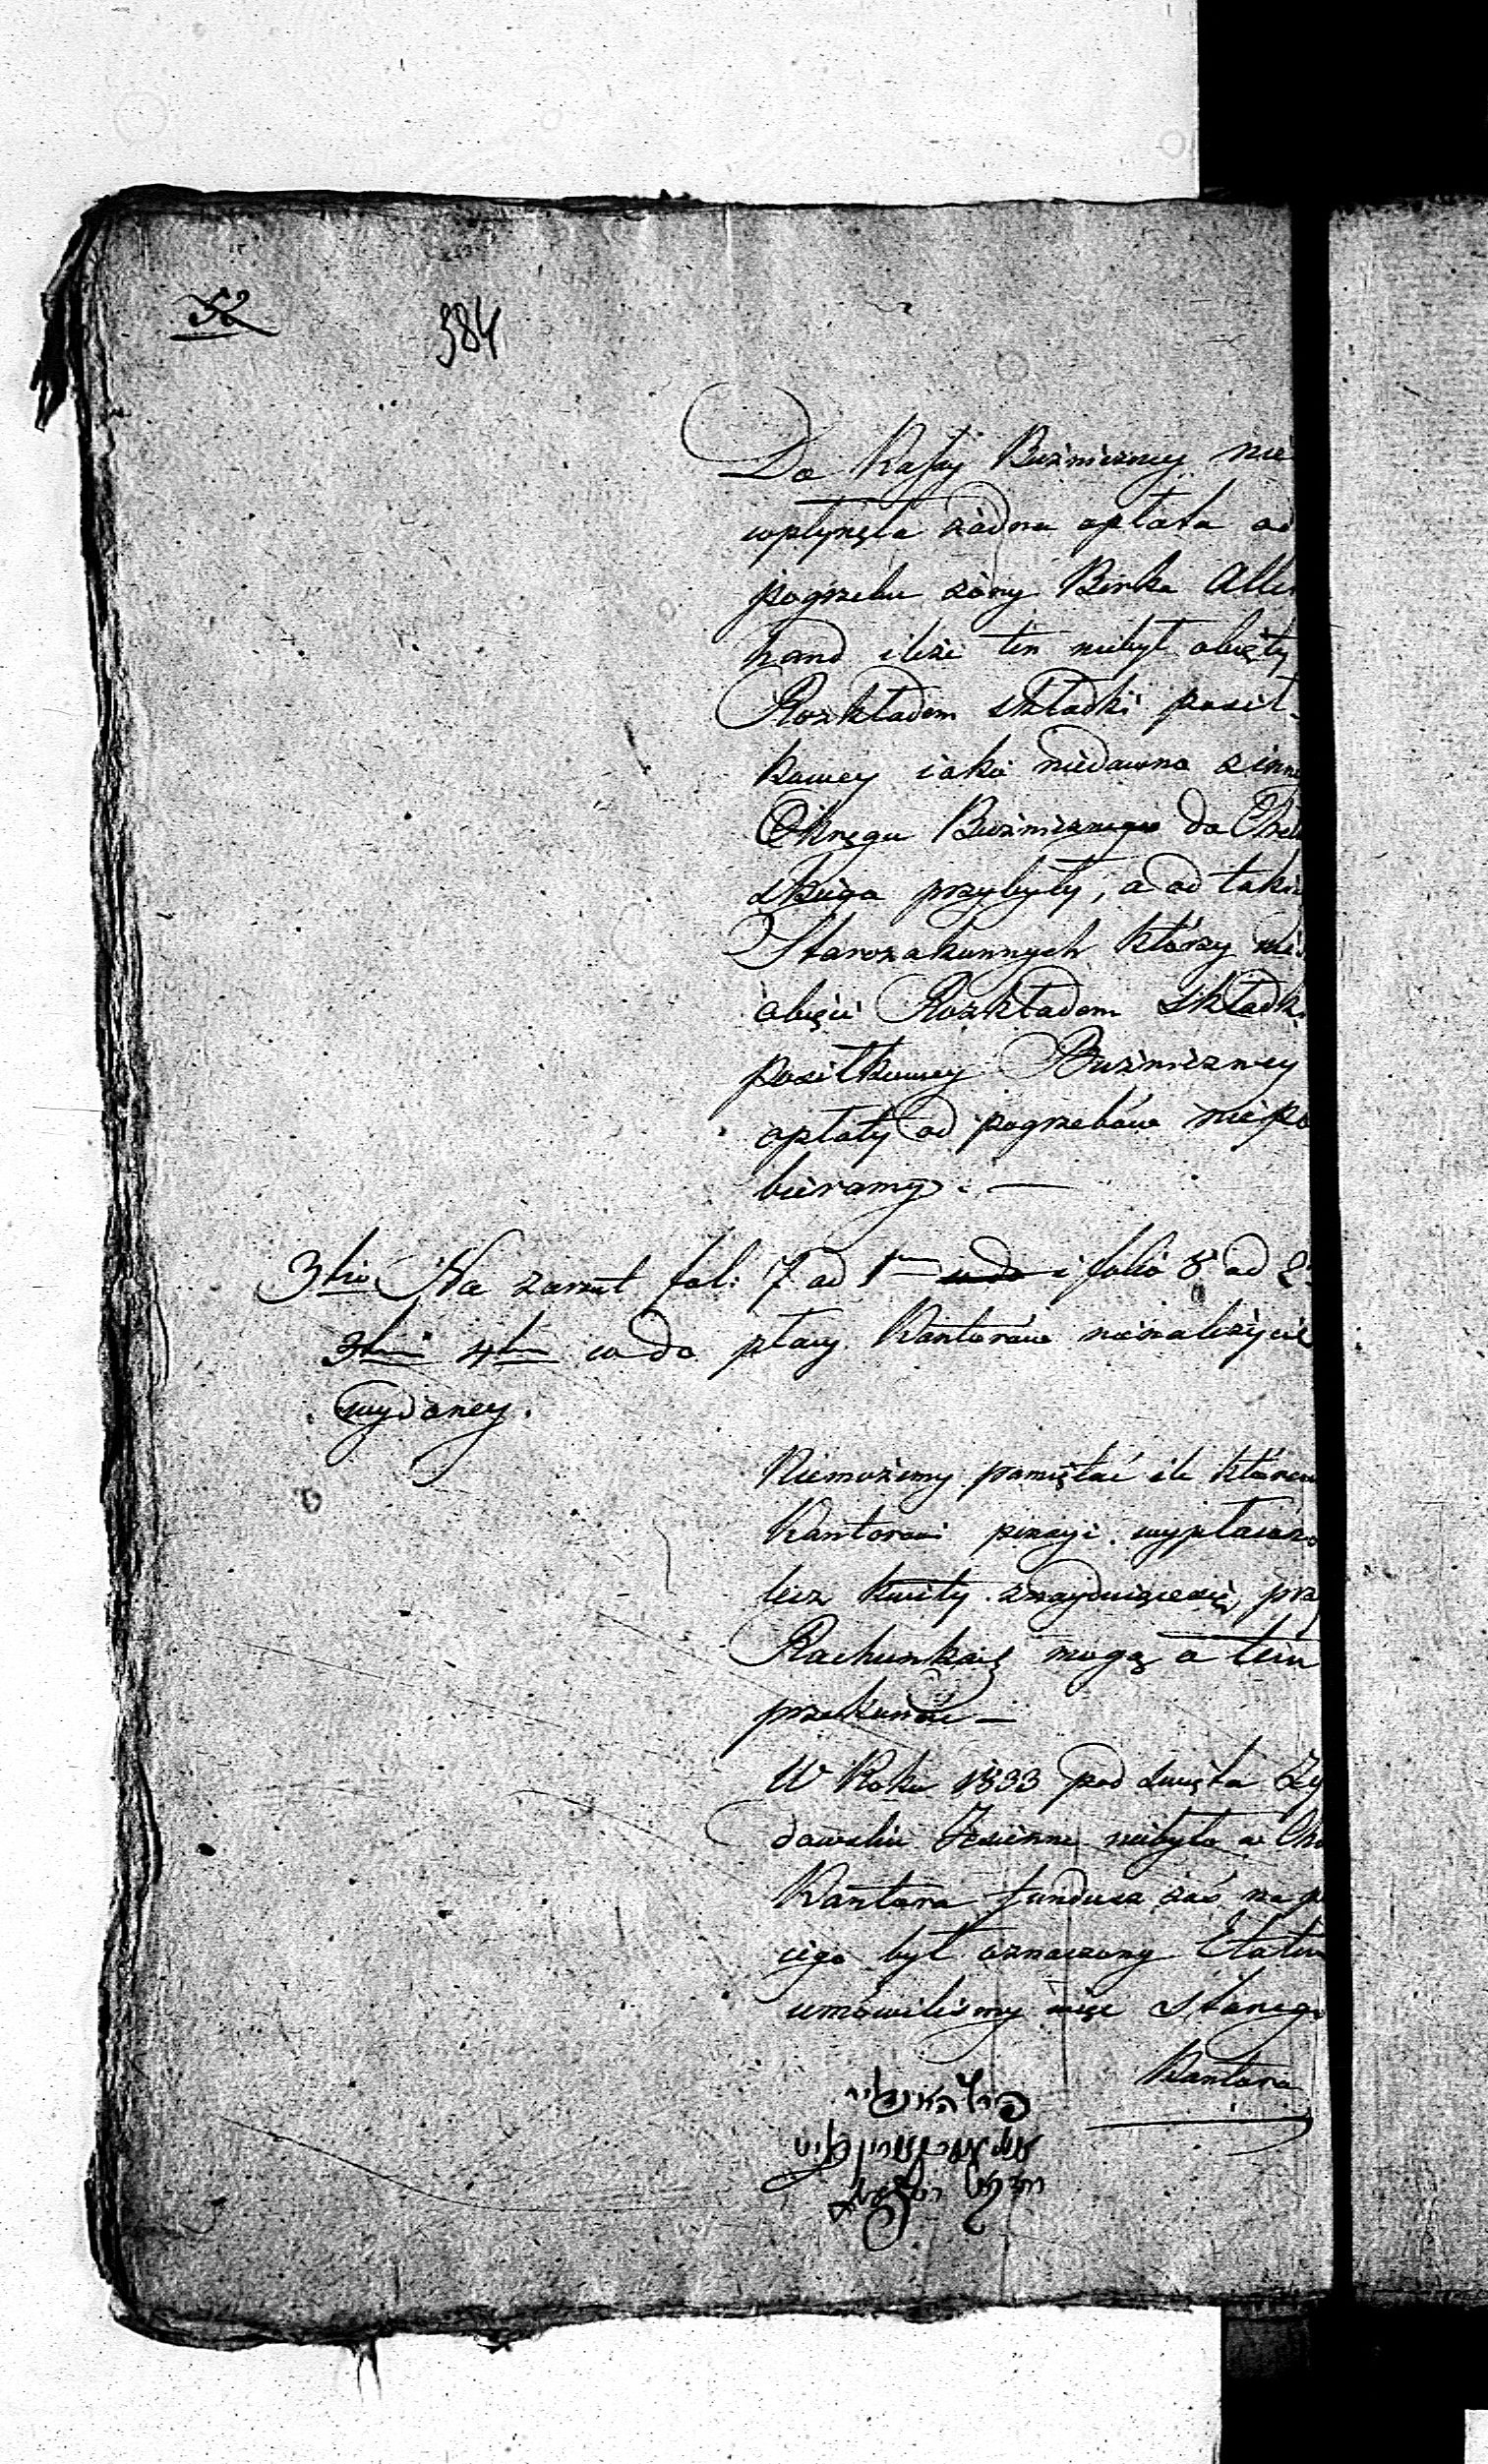 52
384
Do Kassy Bużniczney nie
wpłynęła żadna opłata od
pogrzebu żony Berka Alter
hand iliże ten niebył obięty
Rozkładem składki posił-
kowey iako niedawno z inne
Okręgu Bużnicznego do
skiego przybyły, a od takich
Starozakonnych którzy nie
obięci Rozkładem Składki
posiłkowey Bużniczney
opłaty od pogrzebów niepo
bieramy. —
3tio Na zarzut fol: 7 ad 1 i folio 8 ad 2
3tio 4to co do płacy Kantorów nienależycie
wydaney.
Niemożemy pamiętać ile którem
Kantorowi pensyi wypłacono
lecz kwity znayduiącesię przy
Rachunkach mogą o tem
przekonać —
W Roku 1833 pod święta Ży
dowskie Jesienne niebyło w
Kantora fundusz zaś na
iego był oznaczony Etatem
umówiliśmy więc Starego
Kantora